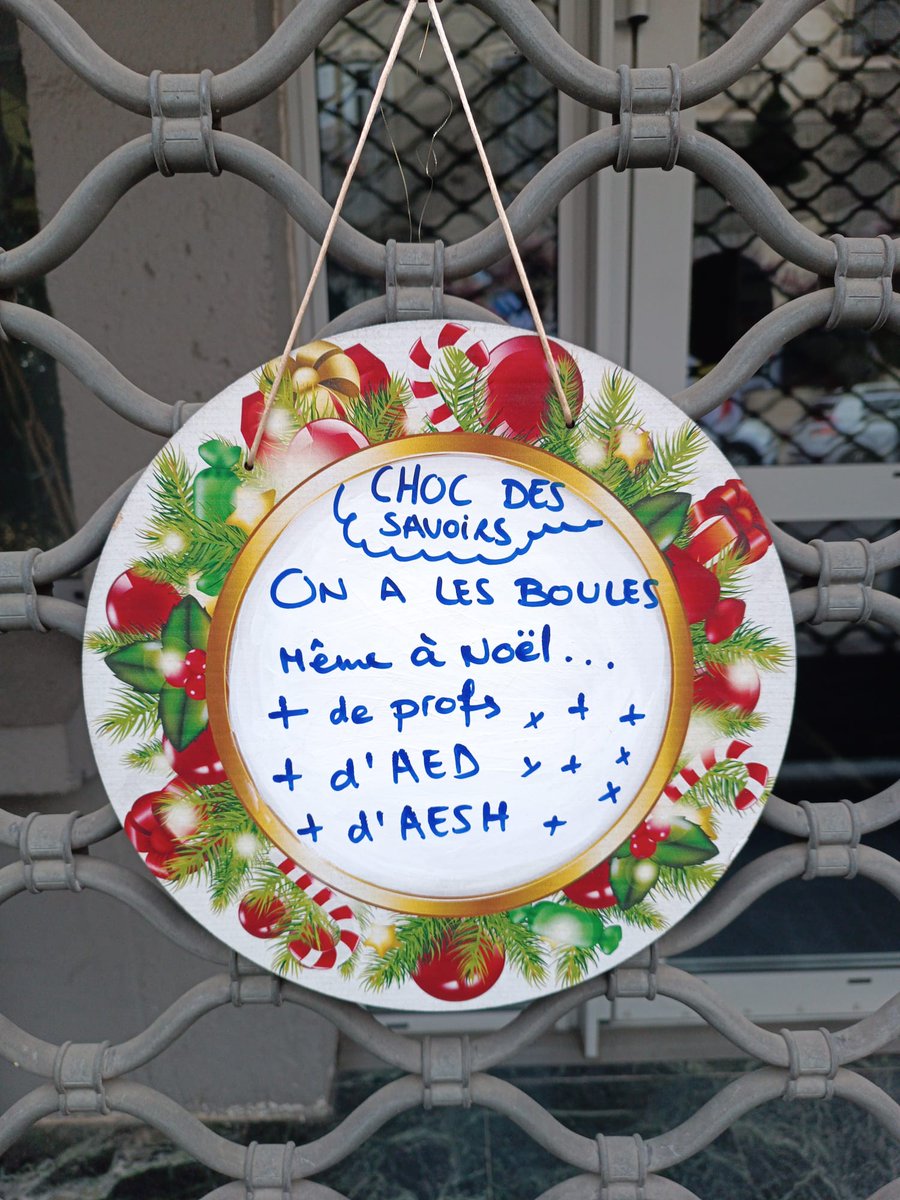 CHOC DES
SAVOIRS
ON A LES BOULES
Même à Noël...
+ de profs + + +
+ d'AED + + +
+ d'AESH + +